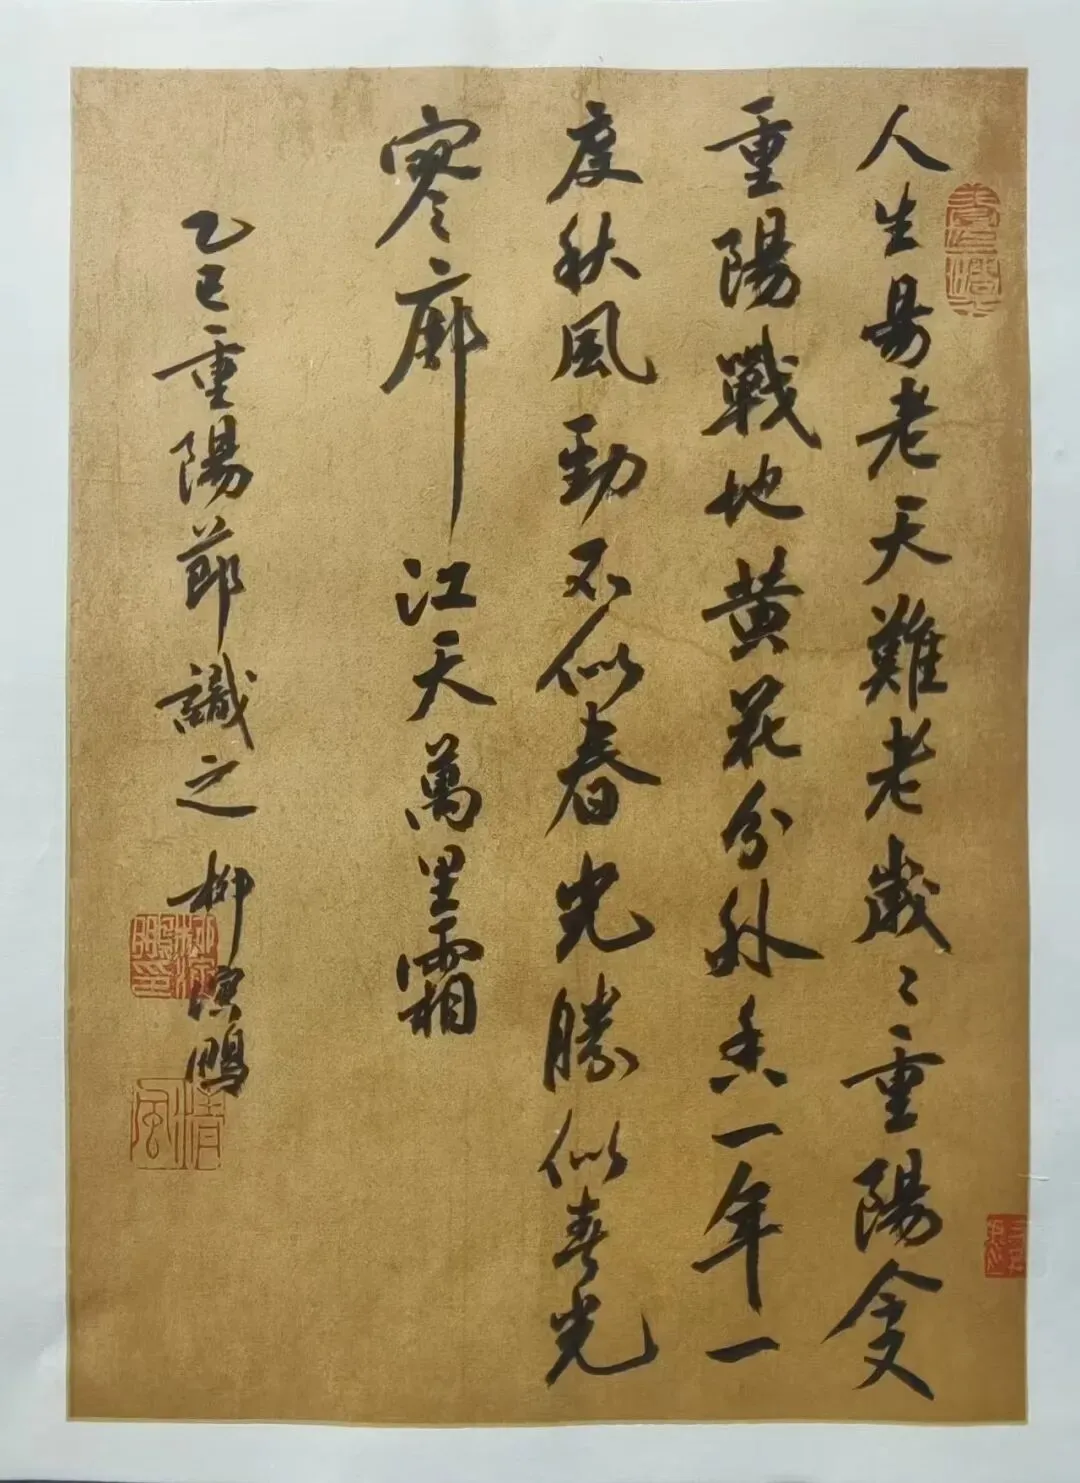 人生易老天難老歲〻重陽今又
重陽戰地黄花分外香一年一
度秋風勁不似春光勝似春光
寥廓江天萬里霜
乙巳重陽節識之柳溟鵬
清風